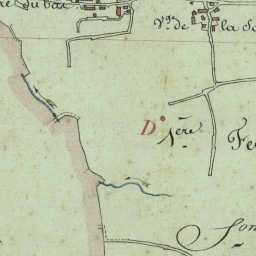 re du bac
V.ge de la Sa
D° 1ère
Fe
Som